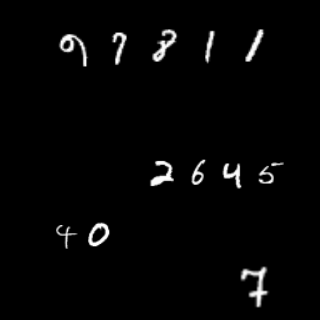 97811
2645
40
7